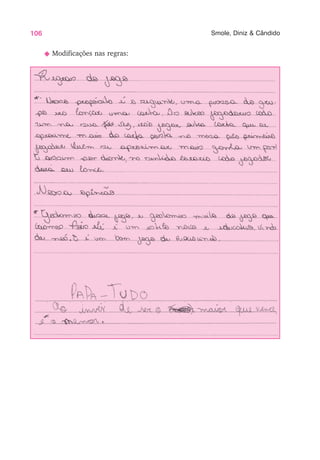 106
Smole, Diniz & Cândido
Modificações nas regras:
Regras do jogo
*- Nossa proposta é o seguinte, uma pessoa do gru-
po vai lançar uma carta. Os outros jogadores cada
um na sua vez, vão jogar outra carta que se
aproxime mais da carta posta na mesa pelo primeiro
jogador. Quem se aproximar mais ganha um par
E assim por diante, no sentido horário cada jogador
dará seu lance.
Nossa opinião
* Gostamos desse jogo, e gostamos muito do jogo que
criamos. Pois ele é um estilo novo e educativo, vindo
de nós, e é um bom jogo de raciocínio.
PAPA-TUDO
Ao invér de ser o maior que vence
é o menor.